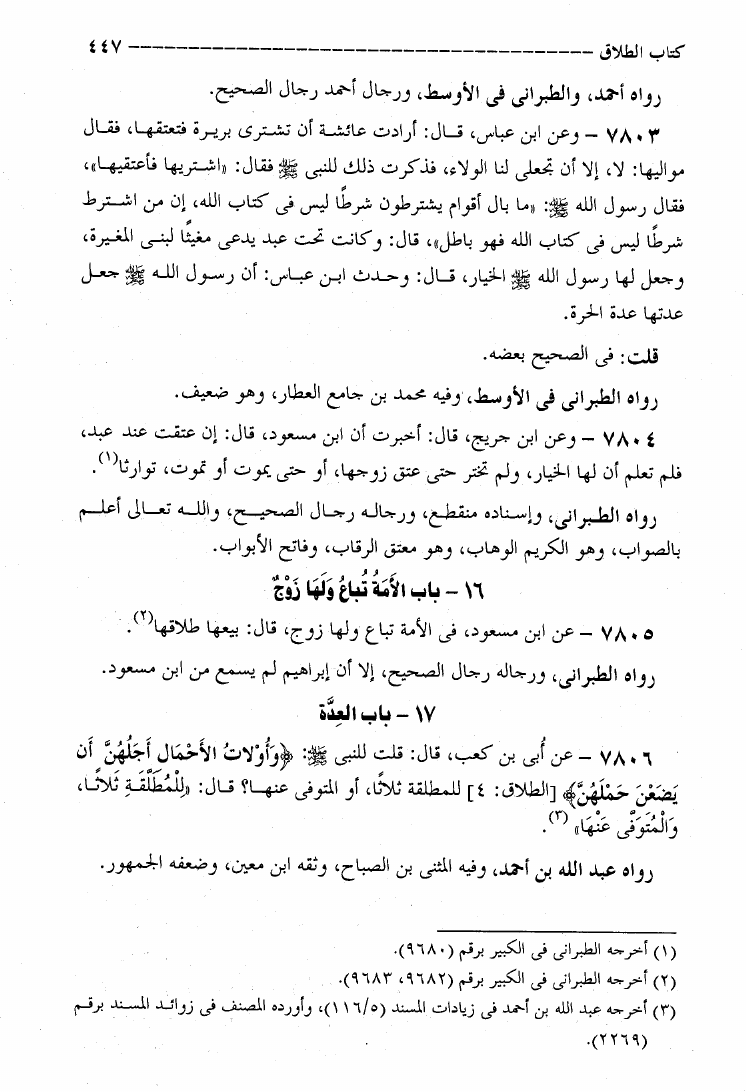 كتاب الطلاق ــــــــــــــــــــــــــــــــــــــــــــــــ ٤٤٧
رواه أحمد، والطبرانى فى الأوسط، ورجال أحمد رجال الصحيح.
٧٨٠٣ – وعن ابن عباس، قال: أرادت عائشة أن تشترى بريرة فتعتقها، فقال
مواليها: لا، إلا أن تجعلى لنا الولاء، فذكرت ذلك للنبى ﷺ فقال: «اشتريها فأعتقيها»،
فقال رسول الله ﷺ: «ما بال أقوام يشترطون شرطًا ليس فى كتاب الله، إن من اشترط
شرطًا ليس فى كتاب الله فهو باطل»، قال: وكانت تحت عبد يدعى مغيثًا لبنى المغيرة،
وجعل لها رسول الله ﷺ الخيار، قال: وحدث ابن عباس: أن رسول الله ﷺ جعل
عدتها عدة الحرة.
قلت: فى الصحيح بعضه.
رواه الطبرانى فى الأوسط، وفيه محمد بن جامع العطار، وهو ضعيف.
٧٨٠٤ – وعن ابن جريج، قال: أخبرت أن ابن مسعود، قال: إن عتقت عند عبد،
فلم تعلم أن لها الخيار، ولم تختر حتى عتق زوجها، أو حتى يموت أو تموت، توارثا(١).
رواه الطبرانى، وإسناده منقطع، ورجاله رجال الصحيح، والله تعالى أعلم
بالصواب، وهو الكريم الوهاب، وهو معتق الرقاب، وفاتح الأبواب.
١٦ – باب الأَمَةُ تُباعُ وَلَهَا زَوْجٌ
٧٨٠٥ – عن ابن مسعود، فى الأمة تباع ولها زوج، قال: بيعها طلاقها(٢).
رواه الطبرانى، ورجاله رجال الصحيح، إلا أن إبراهيم لم يسمع من ابن مسعود.
١٧ – باب العِدَّة
٧٨٠٦ – عن أُبى بن كعب، قال: قلت للنبى ﷺ: ﴿وَأُوْلاتُ الأَحْمَال أَجَلُهُنَّ أَن
يَضَعْنَ حَمْلَهُنَّ﴾ [الطلاق: ٤] للمطلقة ثلاثًا، أو المتوفى عنها؟ قال: «لِلْمُطَلَّقَةِ ثَلاثًا،
وَالْمُتَوَفَّى عَنْهَا» (٣).
رواه عبد الله بن أحمد، وفيه المثنى بن الصباح، وثقه ابن معين، وضعفه الجمهور.
(١) أخرجه الطبرانى فى الكبير برقم (٩٦٨٠).
(٢) أخرجه الطبرانى فى الكبير برقم (٩٦٨٢، ٩٦٨٣).
(٣) أخرجه عبد الله بن أحمد فى زيادات المسند (١١٦/٥)، وأورده المصنف فى زوائد المسند برقم
(٢٢٦٩).